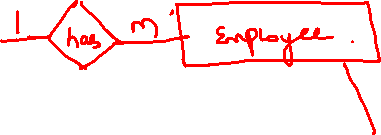 1 has m Employee.